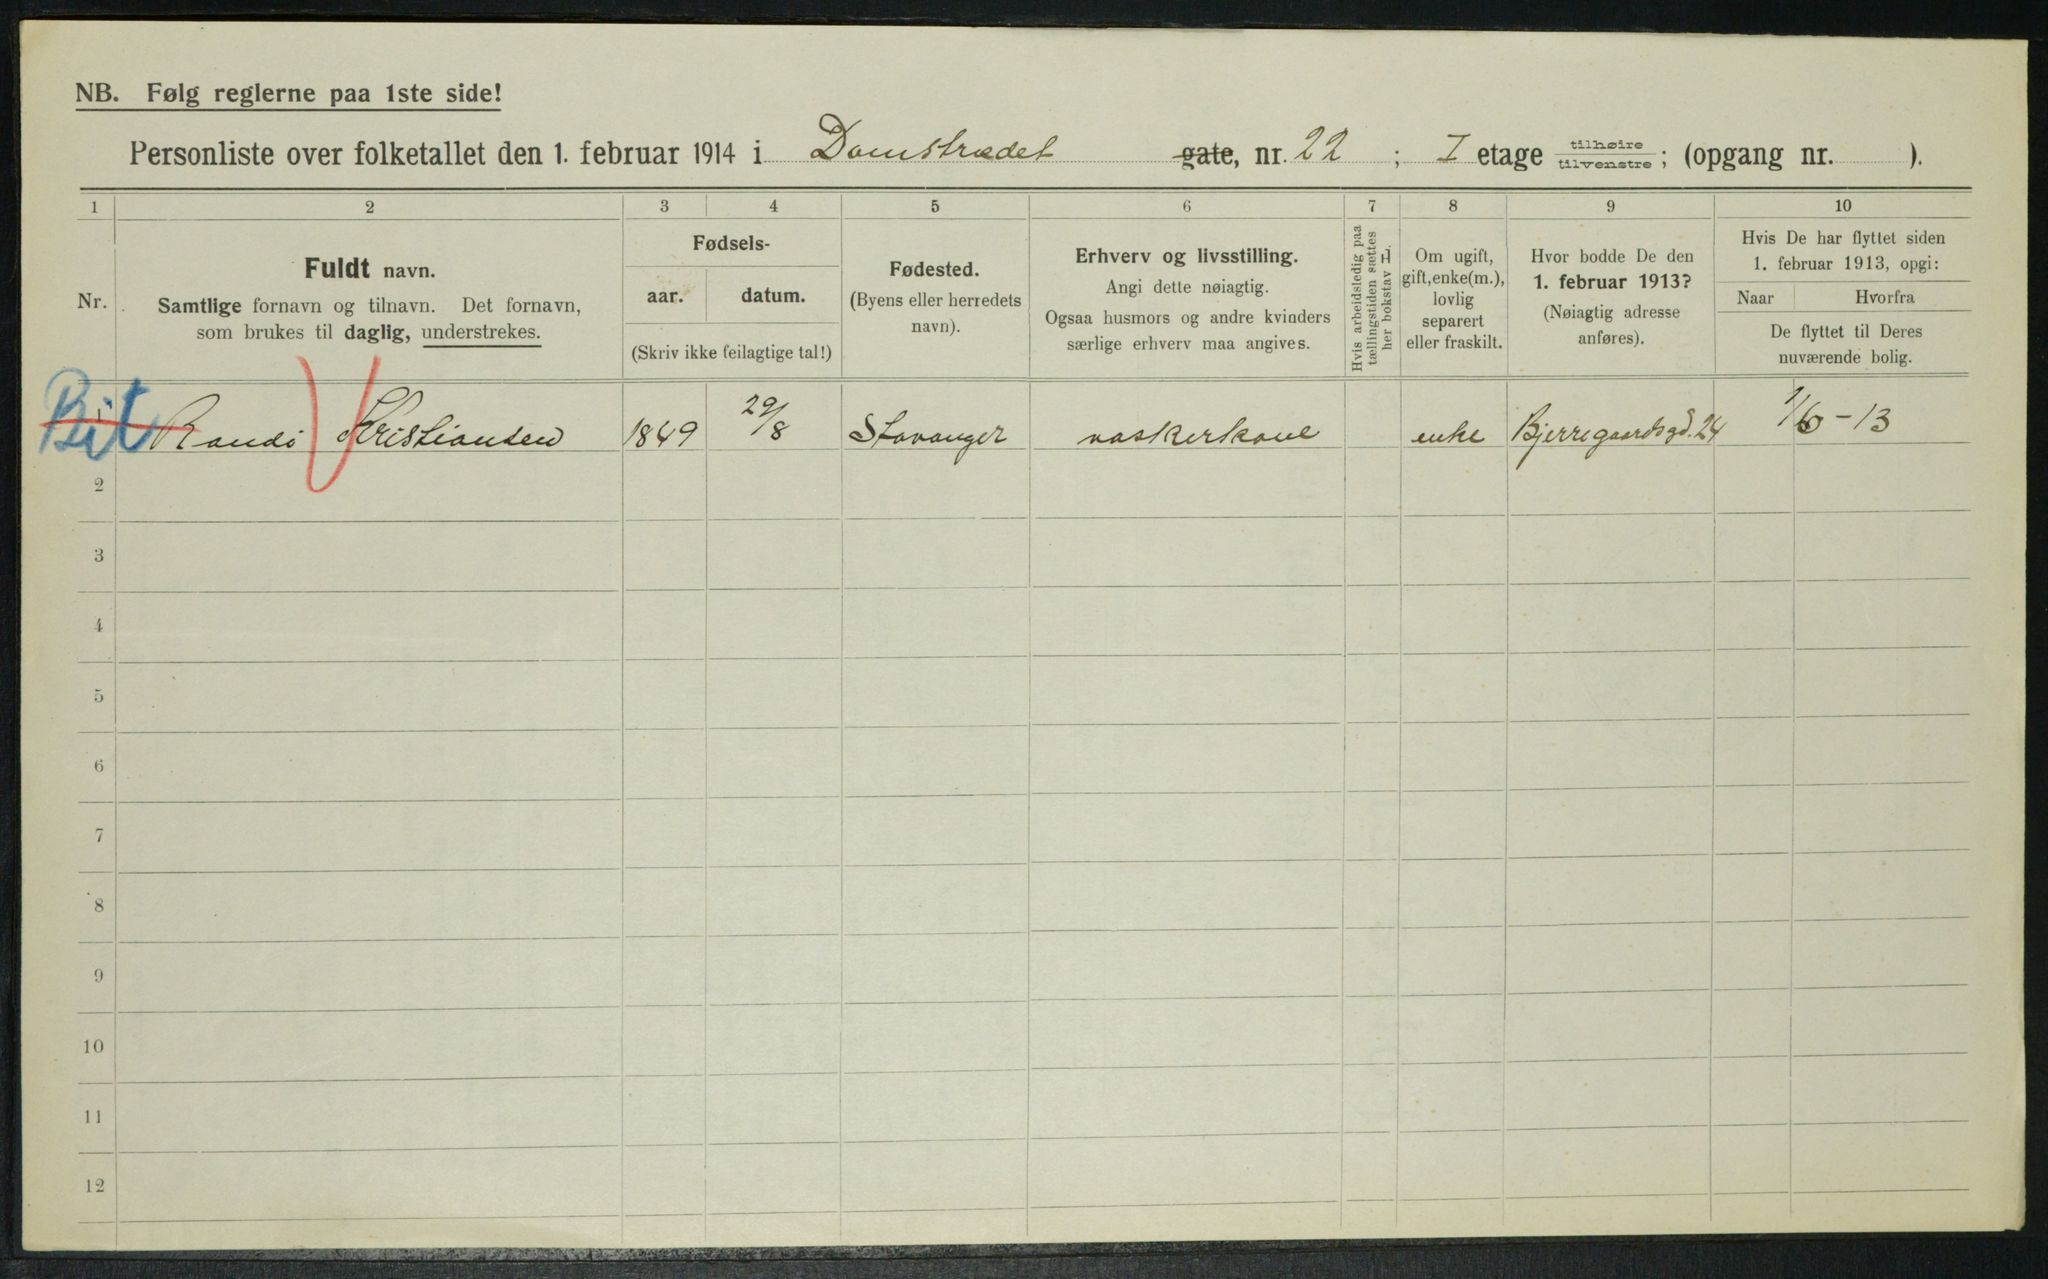 NB. Følg reglerne paa 1ste side!
Personliste over folketallet den 1. februar 1914 i Damstrædet gate, nr. 22 ; I etage tilhøire tilvenstre; (opgang nr. ).
1 2 3 4 5 6 7 8 9 10
Nr.
Fuldt navn.
Samtlige fornavn og tilnavn. Det fornavn,
som brukes til daglig, understrekes.
Fødsels-
aar. datum.
(Skriv ikke feilagtige tal!)
Fødested.
(Byens eller herredets
navn).
Erhverv og livsstilling.
Angi dette nøiagtig.
Ogsaa husmors og andre kvinders
særlige erhverv maa angives.
Hvis arbeidsledig paa
tællingstiden sættes
her bokstav L.
Om ugift,
gift, enke(m.),
lovlig
separert
eller fraskilt.
Hvor bodde De den
1. februar 1913?
(Nøiagtig adresse
anføres).
Hvis De har flyttet siden
1. februar 1913, opgi:
Naar Hvorfra
De flyttet til Deres
nuværende bolig.
Bit
1 Randi Kristiansen 1849 29/8 Stavanger vaskerkone enke Bjerregaardsgd. 24 1/6-13
2
3
4
5
6
7
8
9
10
11
12